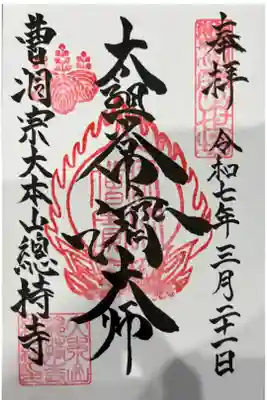 奉拝
令和七年三月二十一日
太祖常濟大師
曹洞宗大本山總持寺